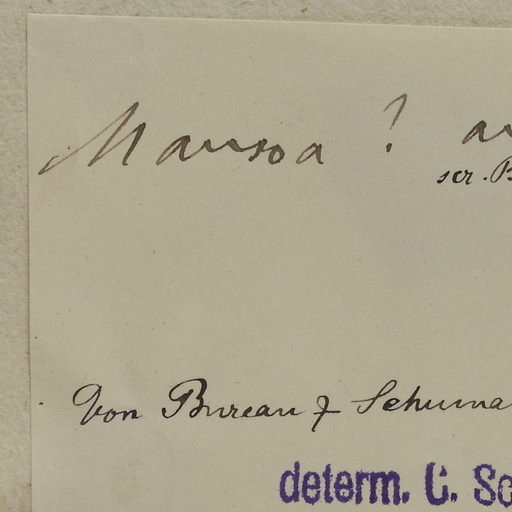 Mansoa ? an
scr. B
Von Bureau & Schuma
determ. C. Sc